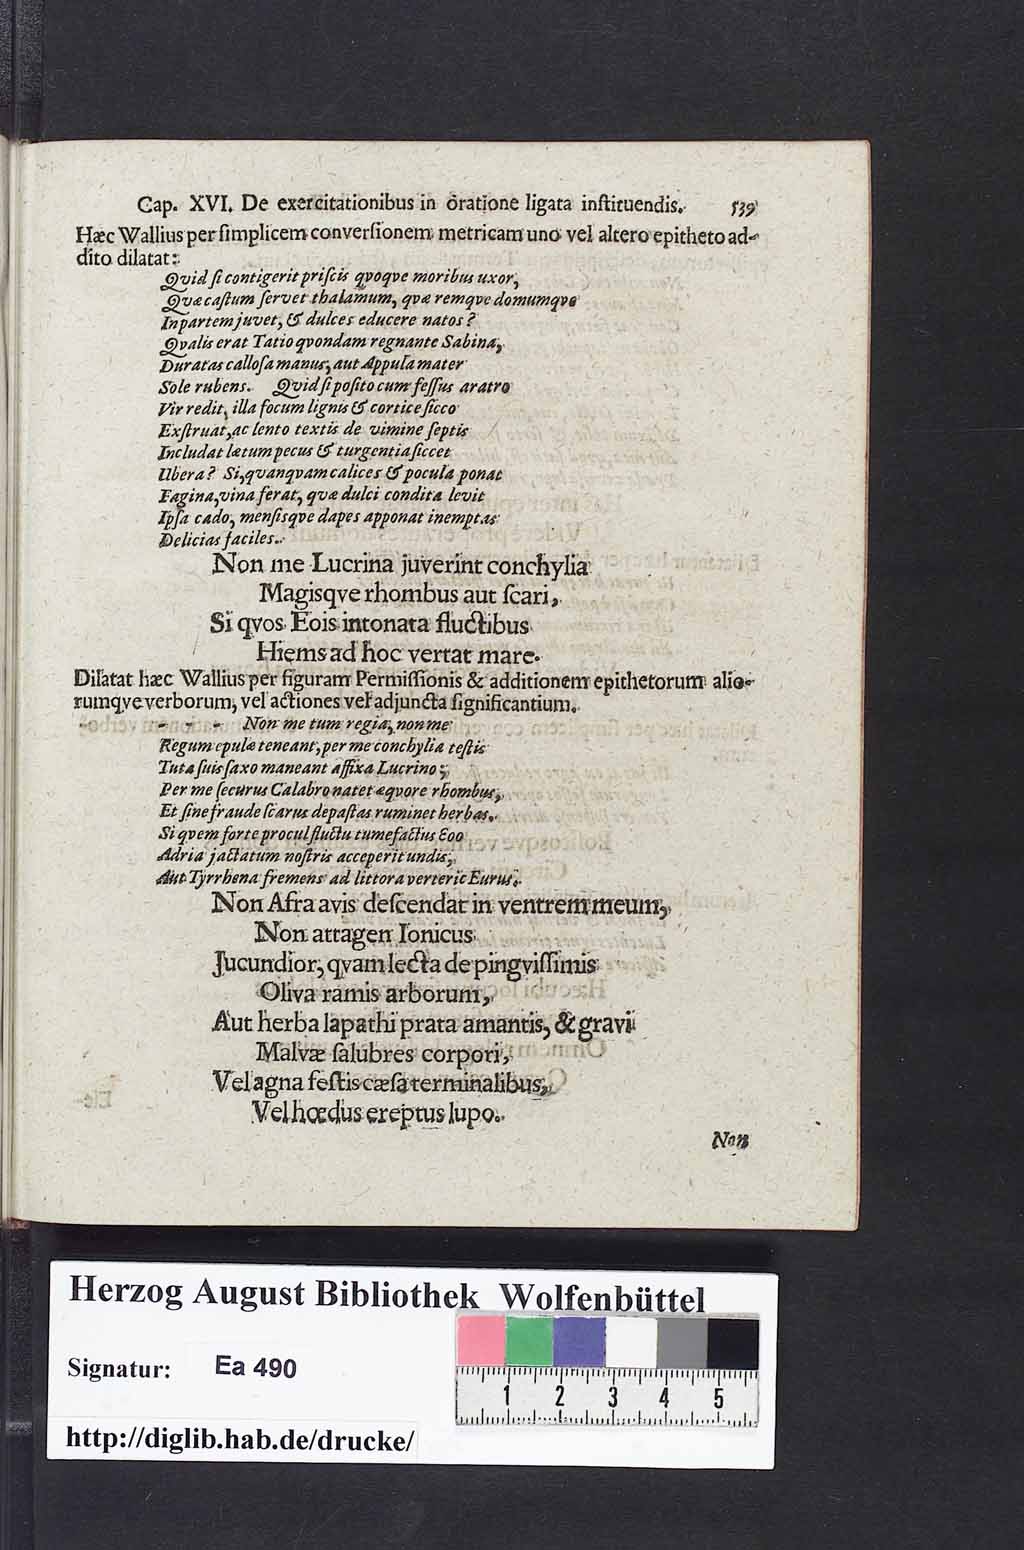 Cap. XVI. De exercitationibus in oratione ligata inſtituendis. 539
Hæc Wallius per ſimplicem converſionem metricam uno vel altero epitheto ad-
dito dilatat:
Qvid ſi contigerit priſcis qvoqve moribus uxor,
Qvæ caſtum ſervet thalamum, qvæ remqve domumqve
In partem juvet, & dulces educere natos?
Qvalis erat Tatio qvondam regnante Sabina,
Duratas calloſa manus, aut Appula mater
Sole rubens. Qvid ſi poſito cum feſſus aratro
Vir redit, illa focum lignis & cortice ſicco
Exſtruat, ac lento textis de vimine ſeptis
Includat lætum pecus & turgentia ſiccet
Ubera? Si, qvanqvam calices & pocula ponat
Fagina, vina ferat, qvæ dulci condita levit
Ipſa cado, menſisqve dapes apponat inemptas
Delicias faciles.
Non me Lucrina juverint conchylia
Magisqve rhombus aut ſcari,
Si qvos Eois intonata fluctibus
Hiems ad hoc vertat mare.
Dilatat hæc Wallius per figuram Permiſſionis & additionem epithetorum alio-
rumqve verborum, vel actiones vel adjuncta ſignificantium.
- - - - Non me tum regia, non me
Regum epulæ teneant, per me conchylia teſtis
Tuta ſuis ſaxo maneant affixa Lucrino;
Per me ſecurus Calabro natet æqvore rhombus,
Et ſine fraude ſcarus depaſtas ruminet herbas.
Si qvem forte procul fluctu tumefactus Eoo
Adria jactatum noſtris acceperit undis,
Aut Tyrrhena fremens ad littora verteric Eurus.
Non Afra avis deſcendat in ventrem meum,
Non attagen Ionicus
Jucundior, qvam lecta de pingviſſimis
Oliva ramis arborum,
Aut herba lapathi prata amantis, & gravi
Malvæ ſalubres corpori,
Vel agna feſtis cæſa terminalibus,
Vel hœdus ereptus lupo.
Non
Herzog August Bibliothek Wolfenbüttel
Signatur: Ea 490
1 2 3 4 5
http://diglib.hab.de/drucke/